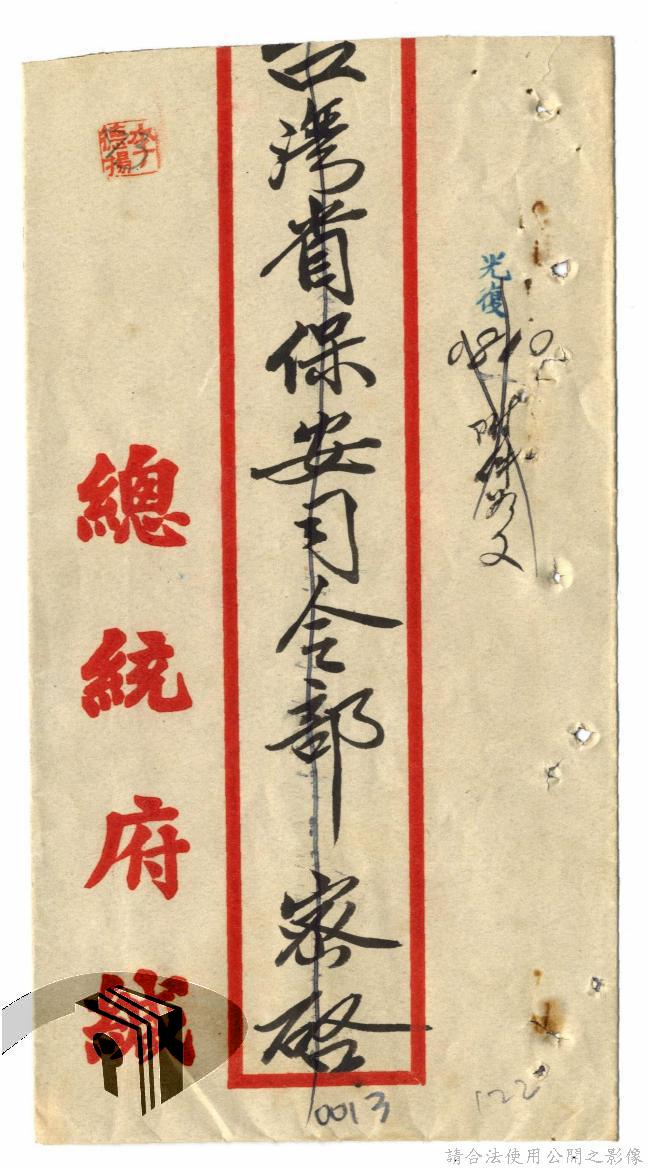 光復
0810
附件如文
台灣省保安司令部 密啓
總統府緘
李德揚
0013
122
請合法使用公開之影像